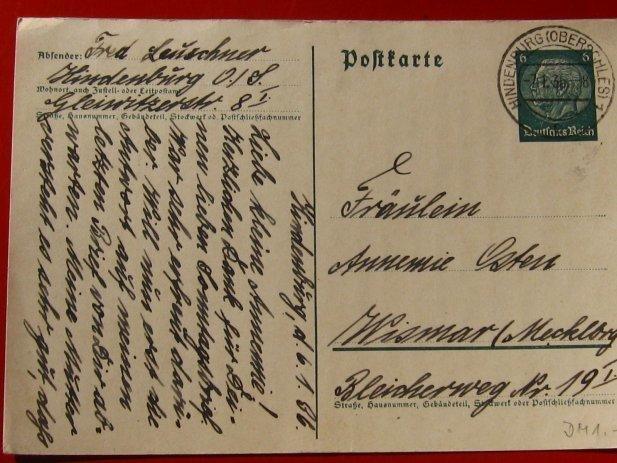 Absender: Fred Leuschner
Hindenburg O/S.
Wohnort, auch Zustell- oder Leitpostamt
Gleiwitzerstr. 8 I.
Straße, Hausnummer, Gebäudeteil, Stockwerk od. Postschließfachnummer
Hindenburg, d. 6.1.36
Liebe kleine Annemie!
Herzlichen Dank für Dei-
nen lieben Sonntagsbrief.
War sehr erfreut darü-
ber. Will nun erst die
Antwort auf meinen
letzten Brief von Dir ab-
warten. Meine Mutter
versteht es sehr gut, daß
Postkarte
HINDENBURG (OBERSCHLES) 1
6 6
Deutsches Reich
Fräulein
Annemie Osten
Wismar/Mecklbg
Bleicherweg Nr. 19 I.
Straße, Hausnummer, Gebäudeteil, Stockwerk oder Postschließfachnummer
DM 1.-